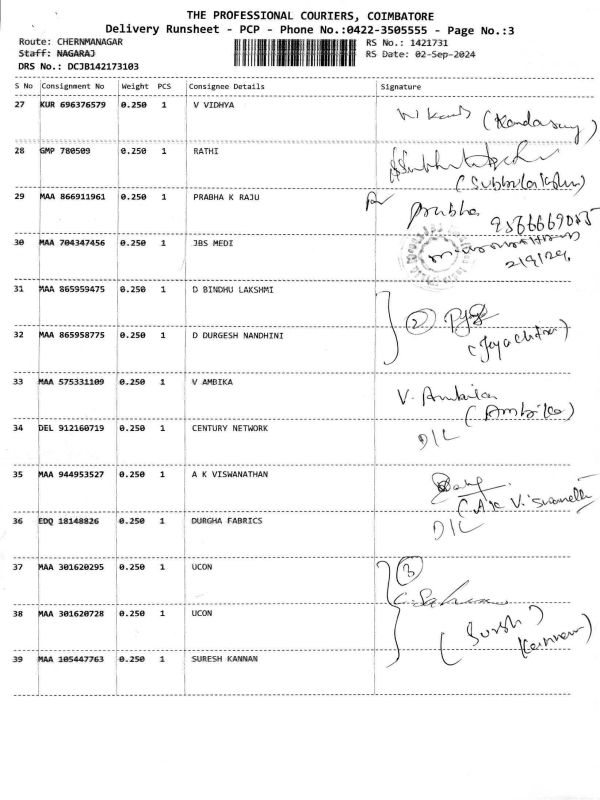 THE PROFESSIONAL COURIERS, COIMBATORE
Delivery Runsheet - PCP - Phone No.:0422-3505555 - Page No.:3
Route: CHERNMANAGAR RS No.: 1421731
Staff: NAGARAJ RS Date: 02-Sep-2024
DRS No.: DCJB142173103
S No Consignment No Weight PCS Consignee Details Signature
27 KUR 696376579 0.250 1 V VIDHYA
(Kandasamy)
28 GMP 780509 0.250 1 RATHI
(Subbulakshmi)
29 MAA 866911961 0.250 1 PRABHA K RAJU
Prabha
30 MAA 704347456 0.250 1 JBS MEDI
2/9/24
31 MAA 865959475 0.250 1 D BINDHU LAKSHMI
2
32 MAA 865958775 0.250 1 D DURGESH NANDHINI
(Jayachitra)
33 MAA 575331109 0.250 1 V AMBIKA
V. Ambika
(Ambika)
34 DEL 912160719 0.250 1 CENTURY NETWORK
D/L
35 MAA 944953527 0.250 1 A K VISWANATHAN
36 EDQ 18148826 0.250 1 DURGHA FABRICS
D/L
37 MAA 301620295 0.250 1 UCON
3
38 MAA 301620728 0.250 1 UCON
(Suresh
Kannan)
39 MAA 105447763 0.250 1 SURESH KANNAN